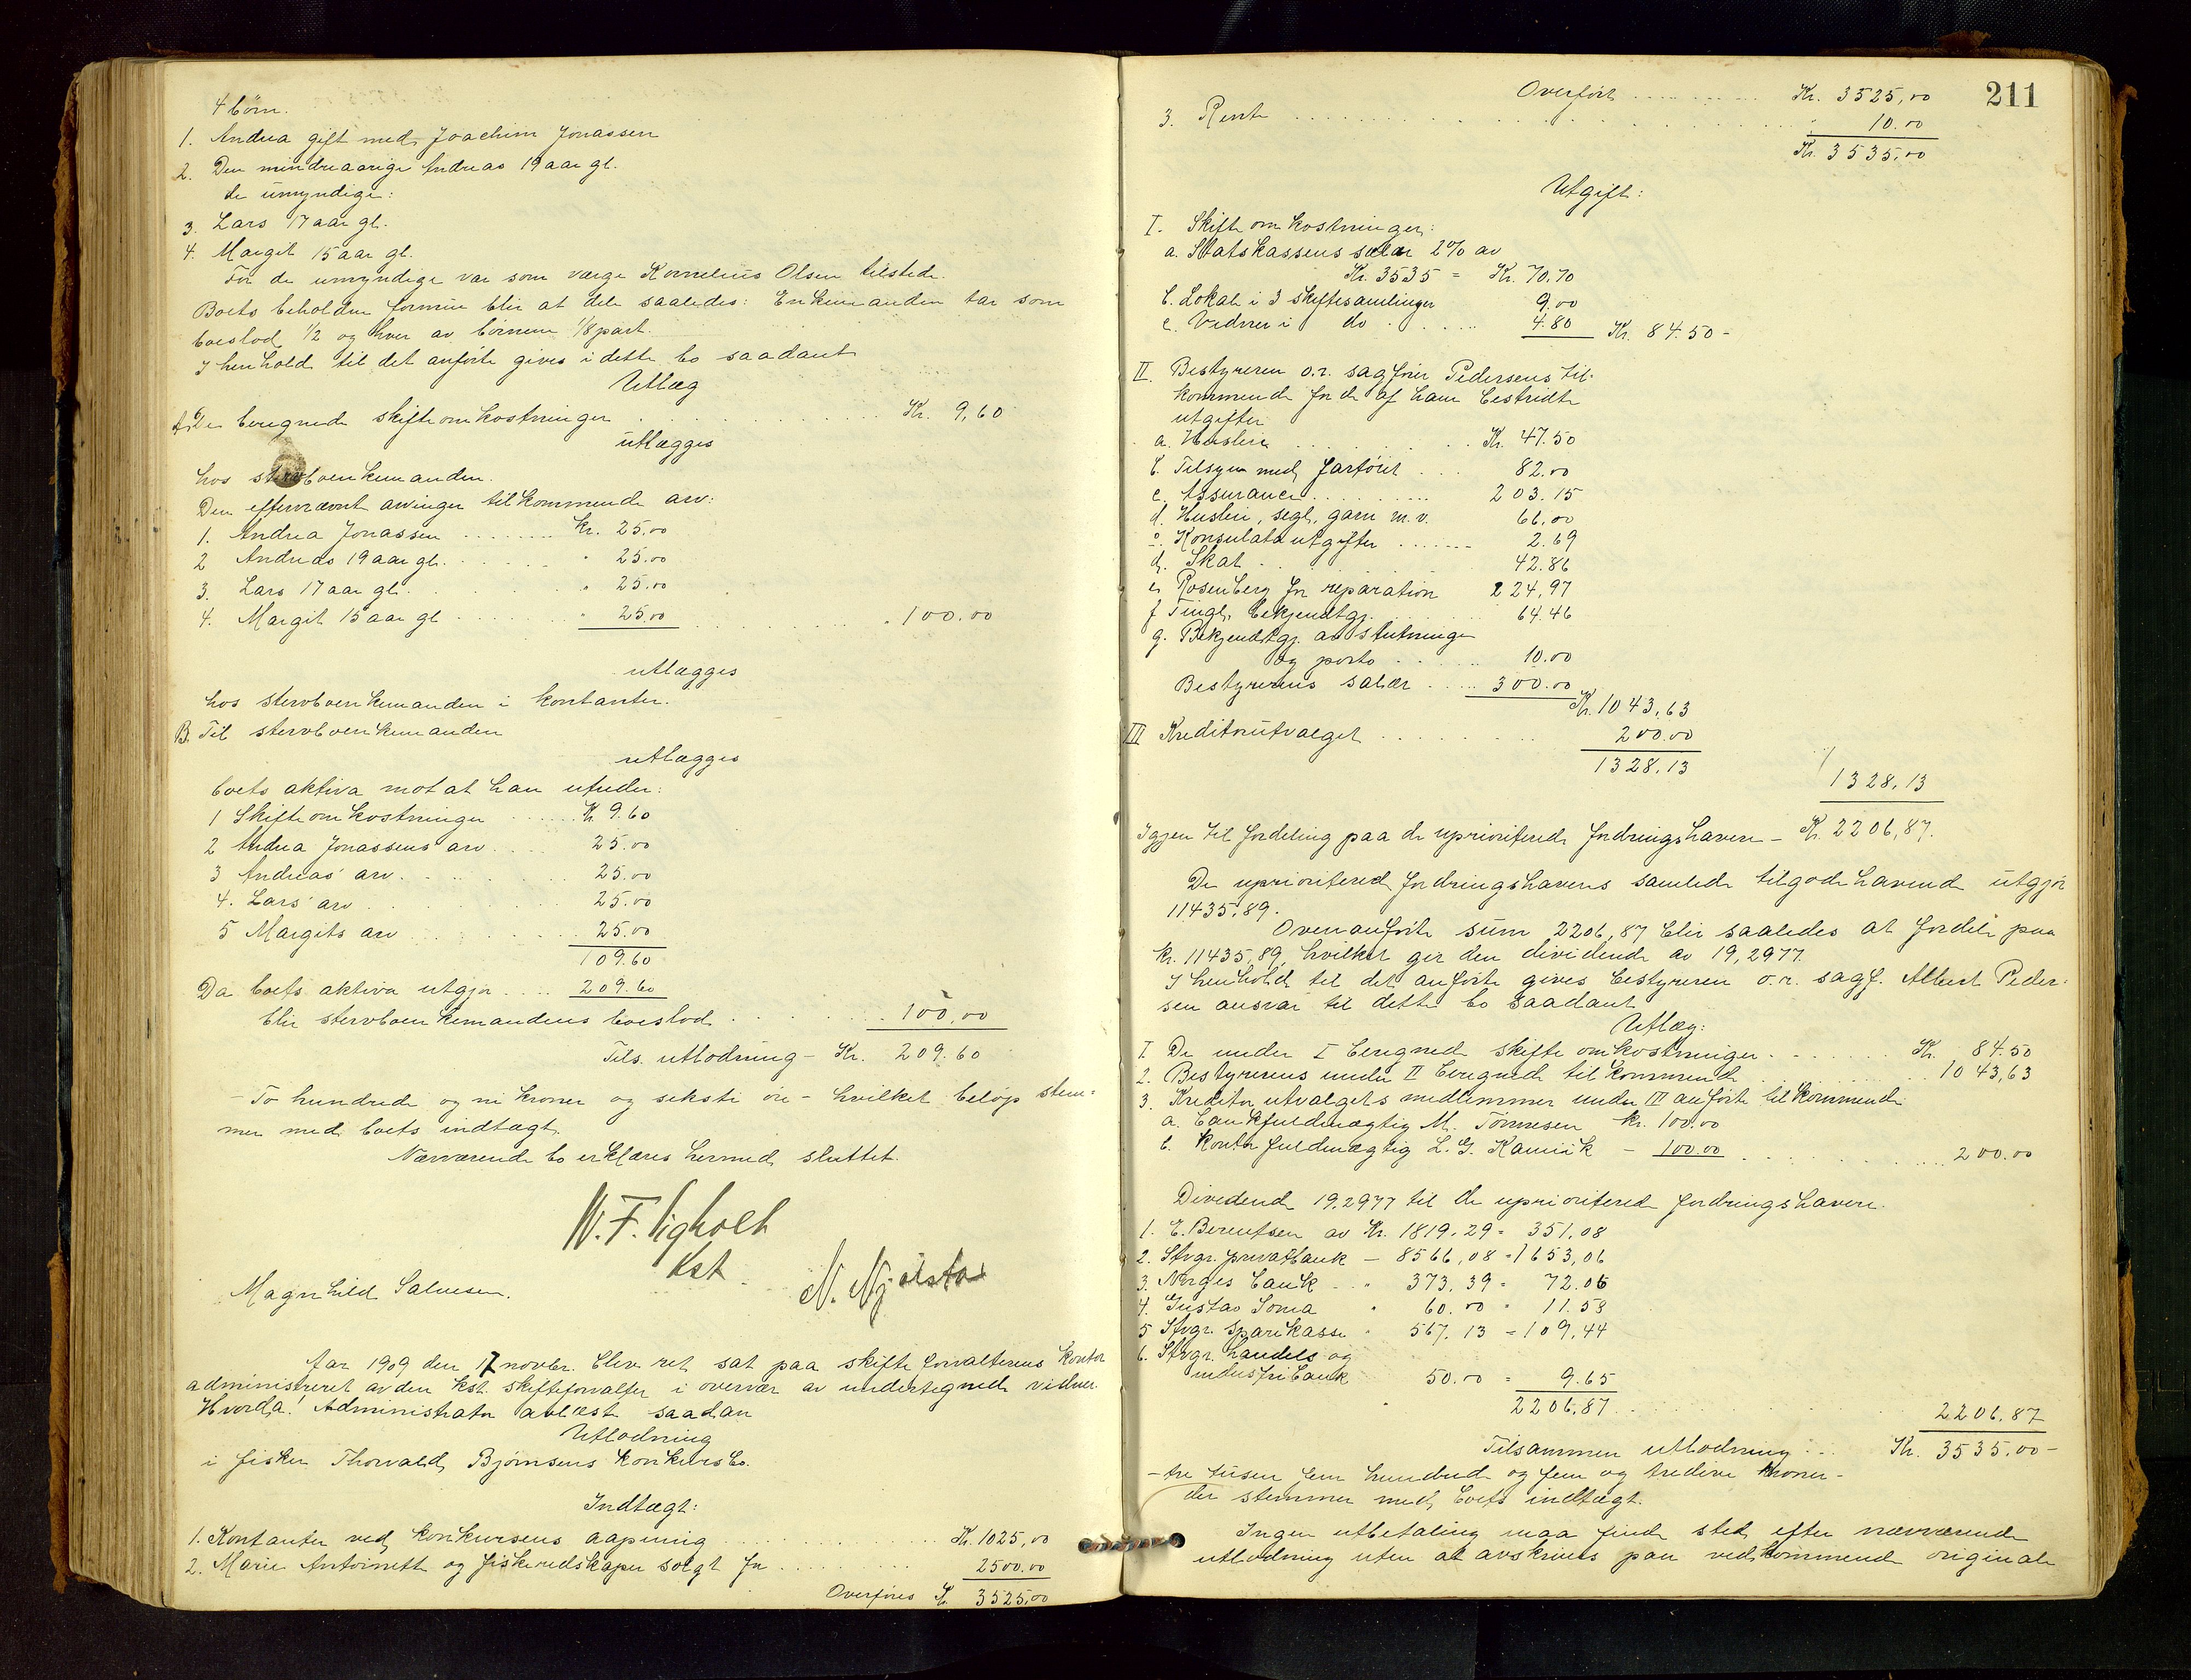 4 börn.
1. Andrea gift med Joachim Jonassen
2. Den mindreaarige Andreas 19 aar gl.
de umyndige:
3. Lars 17 aar gl.
4. Margit 15 aar gl.
For de umyndige var som værge Kornelius Olsen tilstede.
Boets beholdne formue blir at dele saaledes: Enkemanden tar som
boeslod 1/2 og hver av börnene 1/8 part.
I henhold til det anförte gives i dette bo saadant
Utlæg
A. De beregnede skifteomkostninger Kr. 9,60
utlægges
hos stervboenkemanden.
Den efternævnte arvinger tilkommende arv:
1. Andrea Jonassen Kr. 25.00
2 Andreas 19 aar gl. " 25.00
3. Lars 17 aar gl. " 25.00
4. Margit 15 aar gl " 25.00 " 100.00
utlægges
hos stervboenkemanden i kontanter.
B. Til stervboenkemanden
utlægges
boets aktiva mot at han utreder:
1 Skifteomkostninger Kr 9.60
2 Andrea Jonassens arv 25.00
3 Andreas' arv 25.00
4. Lars' arv 25.00
5 Margits arv 25.00
109.60
Da boets aktiva utgjör 209.60
blir stervboenkemandens boeslod 100,00
Tils. utlodning - Kr. 209.60
- To hundrede og ni kroner og seksti öre - hvilket belöp stem=
mer med boets indtægt.
Nærværende bo erklæres hermed sluttet.
Kst.
Magnhild Salvesen. N. Njølstad
Aar 1909 den 17 novbr. blev ret sat paa skifteforvalterens kontor
administreret av den kst. skifteforvalter i overvær av undertegnede vidner.
Hvorda! Administrator avlæste saadan
Utlodning
i fisker Thorvald Bjørnsens konkursbo.
Indtægt:
1. Kontanter ved konkursens aapning Kr. 1025,00
2. Marie Antoinette og fiskeredskaper solgt for 2500.00
Overføres Kr. 3525,00
211
Overført Kr. 3525,00
3. Rente " 10.00
Kr. 3535,00
Utgift:
I. Skifteomkostninger:
a. Statskassens salær 2% av
Kr. 3535 = Kr. 70,70
b. Lokale i 3 skiftesamlinger 9.00
c. Vidner i do 4.80 Kr. 84.50 -
II. Bestyreren o.r. sagfører Pedersens til-
kommende for de af ham bestridte
utgifter
a. Husleie Kr. 47.50
b. Tilsyn med fartöiet 82.00
c. Assurance 203.15
d. Husleie, segl, garn m.v. 66,00
e. Konsulatsutgifter 2.69
d. Skat 42.86
e. Rosenberg for reparation 224,97
f Tingl. bekjendtgj. 64.46
g. Bekjendtgj. av slutninge
og porto 10.00
Bestyrerens salær 300.00
Kr. 1043,63
III Kreditorutvalget 200.00
1328,13
1328,13
Igjen til fordeling paa de uprioriterede fordringshavere - Kr. 2206,87.
De uprioriterede fordringshaveres samlede tilgodehavende utgjør
11435,89.
Ovenanförte sum 2206,87 blir saaledes at fordele paa
kr. 11435,89, hvilket ger den dividende av 19,2977.
I henhold til det anførte gives bestyreren o.r. sagf. Albert Peder-
sen ansvar til dette bo saadant
Utlæg:
1. De under I beregnede skifteomkostninger Kr. 84.50
2. Bestyrerens under II beregnede tilkommende 1043,63
3. Kreditorutvalgets medlemmer under III anförte tilkommende
a. bankfuldmægtig M. Tönnesen kr. 100.00
b. kontorfuldmægtig L. G. Kamvik - 100.00 200.00
Dividende 19,2977 til de uprioriterede fordringshavere.
1. E. Berentsen av Kr. 1819,29 = 351,08
2. Stvgr. privatbank - 8566,08 = 1653,06
3. Norges bank " 373,39 = 72.06
4. Gustav Soma " 60.00 " 11.58
5 Stvgr. Sparekasse " 567,13 = 109,44
6. Stvgr. handels og
industribank 50.00 = 9.65
2206,87 2206.87
Tilsammen utlodning Kr. 3535.00 -
- tre tusen fem hundrede og fem og tredive kroner -
der stemmer med boets indtægt.
Ingen utbetaling maa finde sted efter nærværende
utlodning uten at avskrives paa vedkommende originale